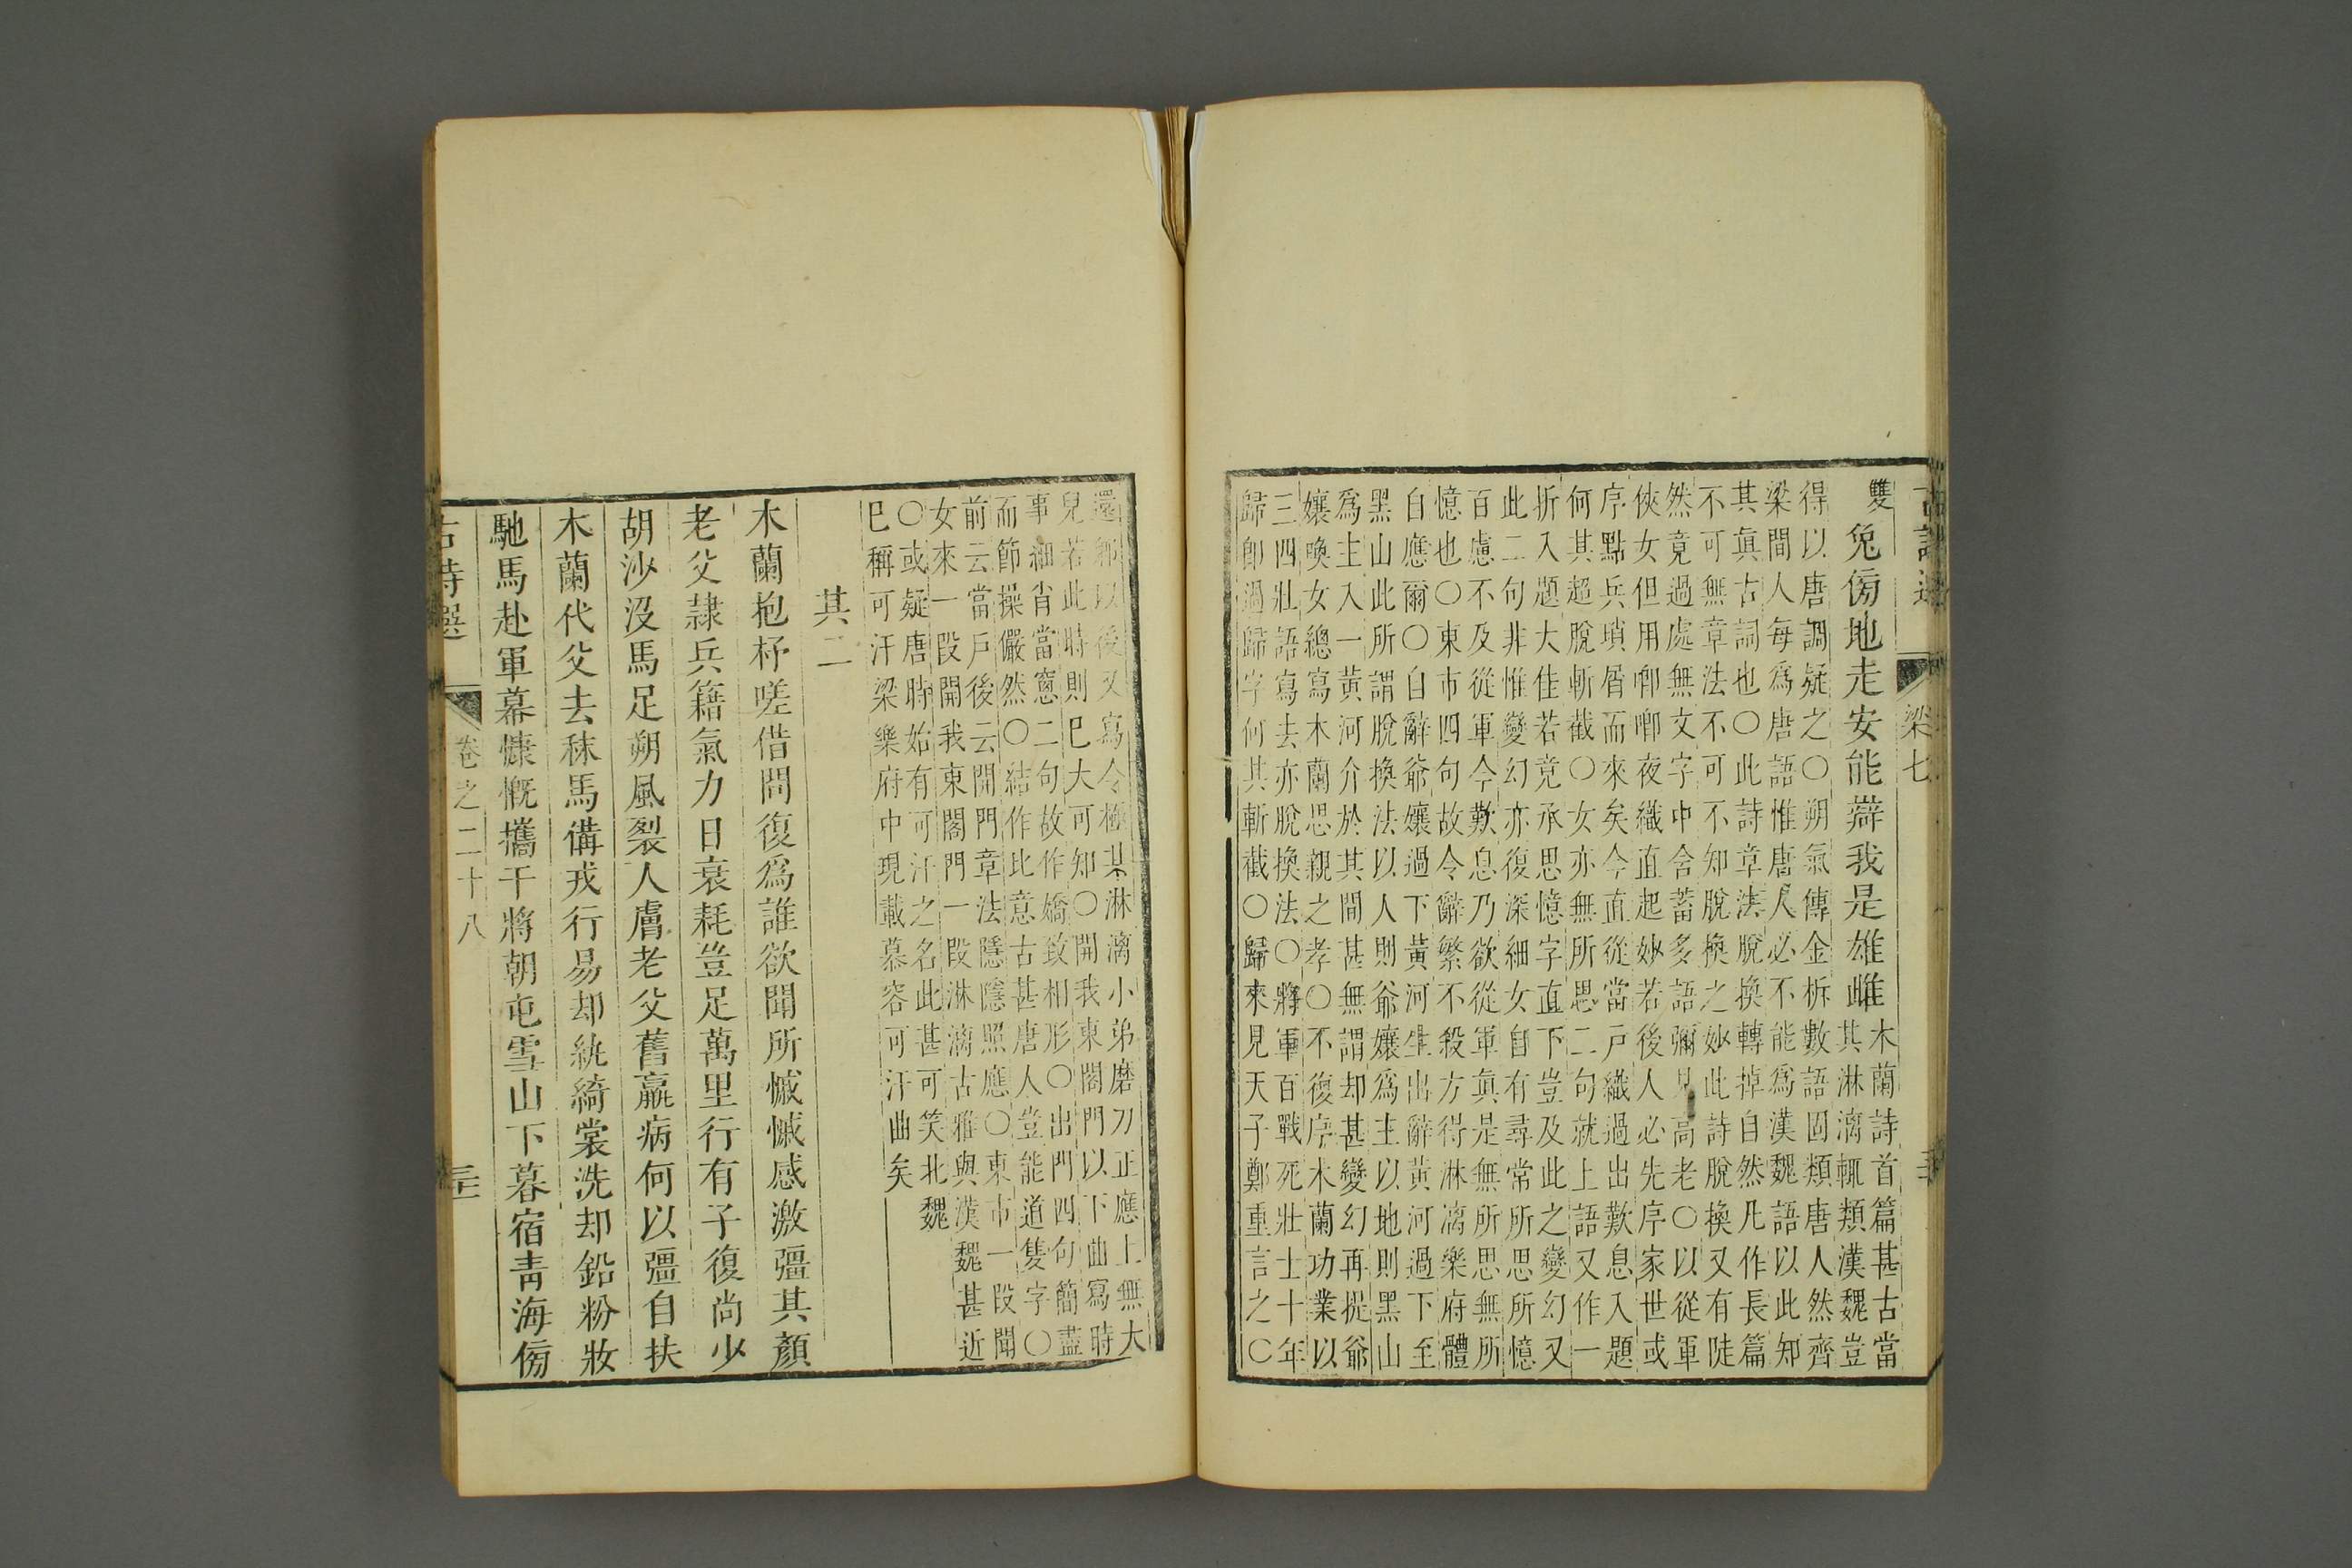 梁七
雙兔傍地走安能辯我是雄雌
木蘭詩首篇甚古當
其淋漓輒類漢魏豈
得以唐調疑之○朔氣傳金柝數語固類唐人然齊
梁間人每爲唐語惟唐人必不能爲漢魏語以此知
其眞古詞也○此詩章法脫換轉掉自然凡作長篇
不可無章法不可不知脫換之妙此詩脫換又有陡
然竟過處無文字中含蓄多語彌見高老○以從軍
俠女但用唧唧夜織直起妙若後人必先序家世或
序點兵瑣屑而來矣今直從當戶織過出歎息入題
何其超脫斬截○女亦無所思二句就上語又作一
折入題大佳若竟承思憶字直下豈及此之變幻又
此二句非惟變幻亦復深細女自有尋常所思所憶
百慮不及從軍今歎息乃欲從軍眞是無所思無所
憶也○東市四句故令辭繁不殺方得淋漓樂府體
自應爾○自辭爺孃過下黃河生出辭黃河過下至
黑山此所謂脫換法以人則爺孃爲主以地則黑山
爲主入一黃河介於其間甚無謂却甚變幻再提爺
孃喚女總寫木蘭思親之孝○不復序木蘭功業以
三四壯語寫去亦脫換法○將軍百戰死壯士十年
歸卽過歸字何其斬截○歸來見天子鄭重言之○
還鄉以後又寫令極其淋漓小弟磨刀正應上無大
兒若此時則已大可知○開我東閣門以下曲寫時
事細肖當窻二句故作嬌致相形○出門四句簡盡
而節操儼然○結作此意古甚唐人豈能道隻字○
前云當戶後云開門章法隱隱照應○東市一段聞
女來一段開我東閣門一段淋漓古雅與漢魏甚近
○或疑唐時始有可汗之名此甚可笑北魏
已稱可汗梁樂府中現載慕容可汗曲矣
其二
木蘭抱杼嗟借問復爲誰欲聞所慽慽感激彊其顏
老父隷兵籍氣力日衰耗豈足萬里行有子復尚少
胡沙没馬足朔風裂人膚老父舊羸病何以彊自扶
木蘭代父去秣馬備戎行易却紈綺裳洗却鉛粉妝
馳馬赴軍幕慷慨攜干將朝屯雪山下暮宿靑海傍
古詩選 卷之二十八